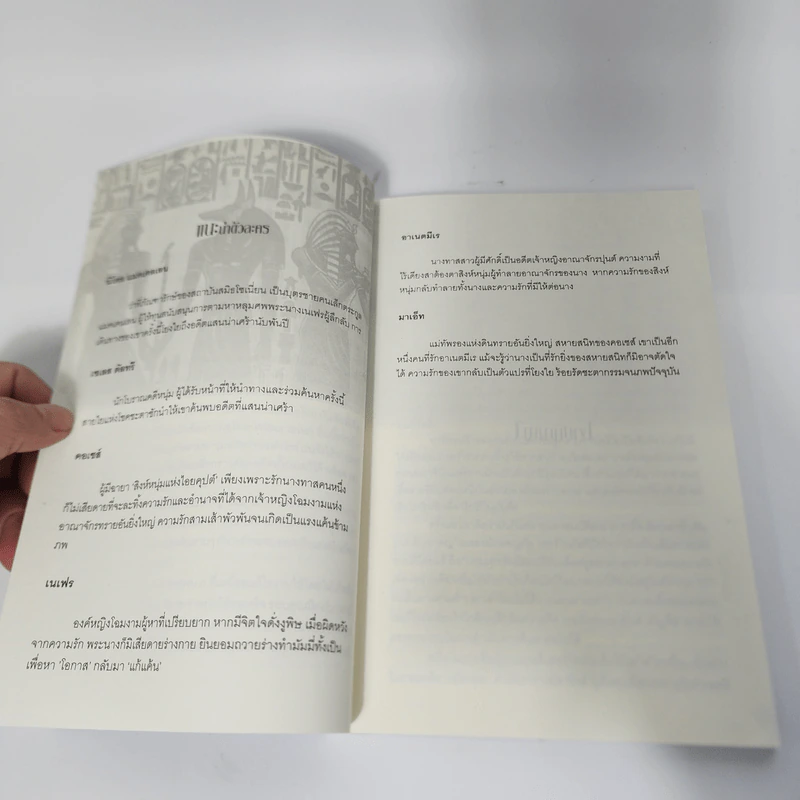 แนะนำตัวละคร
เป็นบุตรชายคนเล็กตระกูล
ผู้ให้ทุนสนับสนุนการตามหาหลุมศพพระนางเนเฟรผู้ลึกลับ การ
เดินทางของเขาครั้งนี้โยงใยถึงอดีตแสนน่าเศร้านับพันปี
นักโบราณคดีหนุ่ม ผู้ได้รับหน้าที่ให้นำทางและร่วมค้นหาครั้งนี้
สายใยแห่งโชคชะตาชักนำให้เขาค้นพบอดีตที่แสนน่าเศร้า
คอเซส์
ผู้มีฉายา 'สิงห์หนุ่มแห่งไอยคุปต์' เพียงเพราะรักนางทาสคนหนึ่ง
ก็ไม่เสียดายที่จะละทิ้งความรักและอำนาจที่ได้จากเจ้าหญิงโฉมงามแห่ง
อาณาจักรทรายอันยิ่งใหญ่ ความรักสามเส้าพัวพันจนเกิดเป็นแรงแค้นข้าม
ภพ
เนเฟร
องค์หญิงโฉมงามผู้หาที่เปรียบยาก หากมีจิตใจดั่งงูพิษ เมื่อผิดหวัง
จากความรัก พระนางก็มิเสียดายร่างกาย ยินยอมถวายร่างทำมัมมี่ทั้งเป็น
เพื่อหา 'โอกาส' กลับมา 'แก้แค้น'
อาเนตมีเร
นางทาสสาวผู้มีศักดิ์เป็นอดีตเจ้าหญิงอาณาจักรปุนต์ ความงามที่
ไร้เดียงสาต้องตาสิงห์หนุ่มผู้ทำลายอาณาจักรของนาง หากความรักของสิงห์
หนุ่มกลับทำลายทั้งนางและความรักที่มีให้ต่อนาง
มาเอ็ท
แม่ทัพรองแห่งดินทรายอันยิ่งใหญ่ สหายสนิทของคอเซส์ เขาเป็นอีก
หนึ่งคนที่รักอาเนตมีเร แม้จะรู้ว่านางเป็นที่รักยิ่งของสหายสนิทก็มิอาจตัดใจ
ได้ ความรักของเขากลับเป็นตัวแปรที่โยงใย ร้อยรัดชะตากรรมจนภพปัจจุบัน